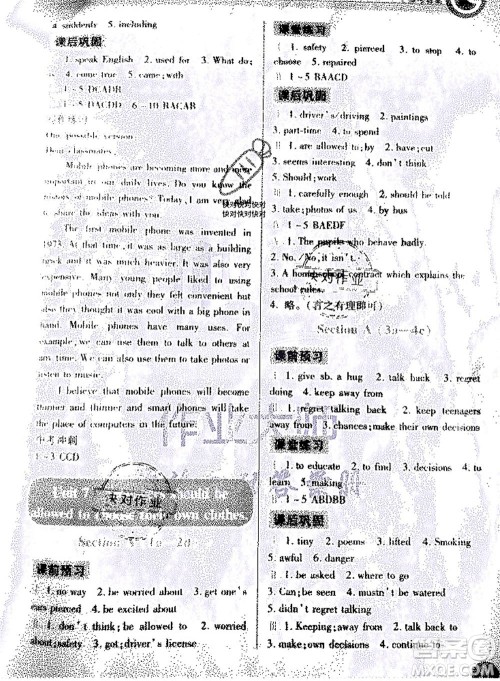 4. suddenly 5. including
课后巩固
1. speak English 2. used for 3. What do;
4. come true 5. came; with
1-5 DCADB
1-5 DACDD 6-10 BACAB
One possible version:
Dear classmates,
Mobile phones are becoming more and more
important in our daily lives. Do you know the
history of mobile phones? Today, I am very glad
to share the ideas with you.
The first mobile phone was invented in
1973. At that time, it was as large as a building
brick and it was much heavier. It was also very
expensive. Many young people liked to use
mobile phones not only they felt convenient but
also they thought it was cool with a big phone in
hand. Mobile phones have many uses. For
example, we can use them to talk to others at
any time. We can also use them to take photos or
listen to music.
I believe that mobile phones will become
thinner and thinner and smart phones will take
the place of computers in the future.
中考冲刺
1-3 CCD
Unit 7 should be
allowed to choose their own clothes
Section A 1a-2d
课前预习
1. no way 2. be worried about 3. get one's
ears pierced 4. be excited about
1. don't think; be allowed to 2. worried
about; safety 3. got; driver's license
课堂练习
1. safety 2. pierced 3. to stop 4. to
choose 5. repaired
1-5 BAACD
课后巩固
1. driver's/driving 2. paintings
3. part-time 4. to spend
1. are allowed to; by 2. have; cut
3. seems interesting 4. don't think
5. Should; work
1. carefully enough 2. instead of
3. take; photos of us 4. by bus
1-5 BAEDF
1. The pupils who behave badly.
2. No. / No, it isn't.
3. A home-school contract which explains the
school rules.
4. 略。(言之有理即可)
Section A (3a-4c)
课前预习
1. give sb. a hug 2. talk back 3. regret
doing 4. keep away from
1. regret talking back 2. keep teenagers
away from 3. chances; make; own decisions
课堂练习
1. to educate 2. to find 3. decisions 4. to
learn 5. making
1-5 ABDBB
课后巩固
1. tiny 2. poems 3. lifted 4. Smoking
5. awful 6. danger
1. is used to 2. be asked 3. where to go
4. Can; be seen 4. mustn't be watered
5. didn't regret talking
1. Keeping; away from 2. talked back to
3. make; own decisions 4. continue to
快对作业